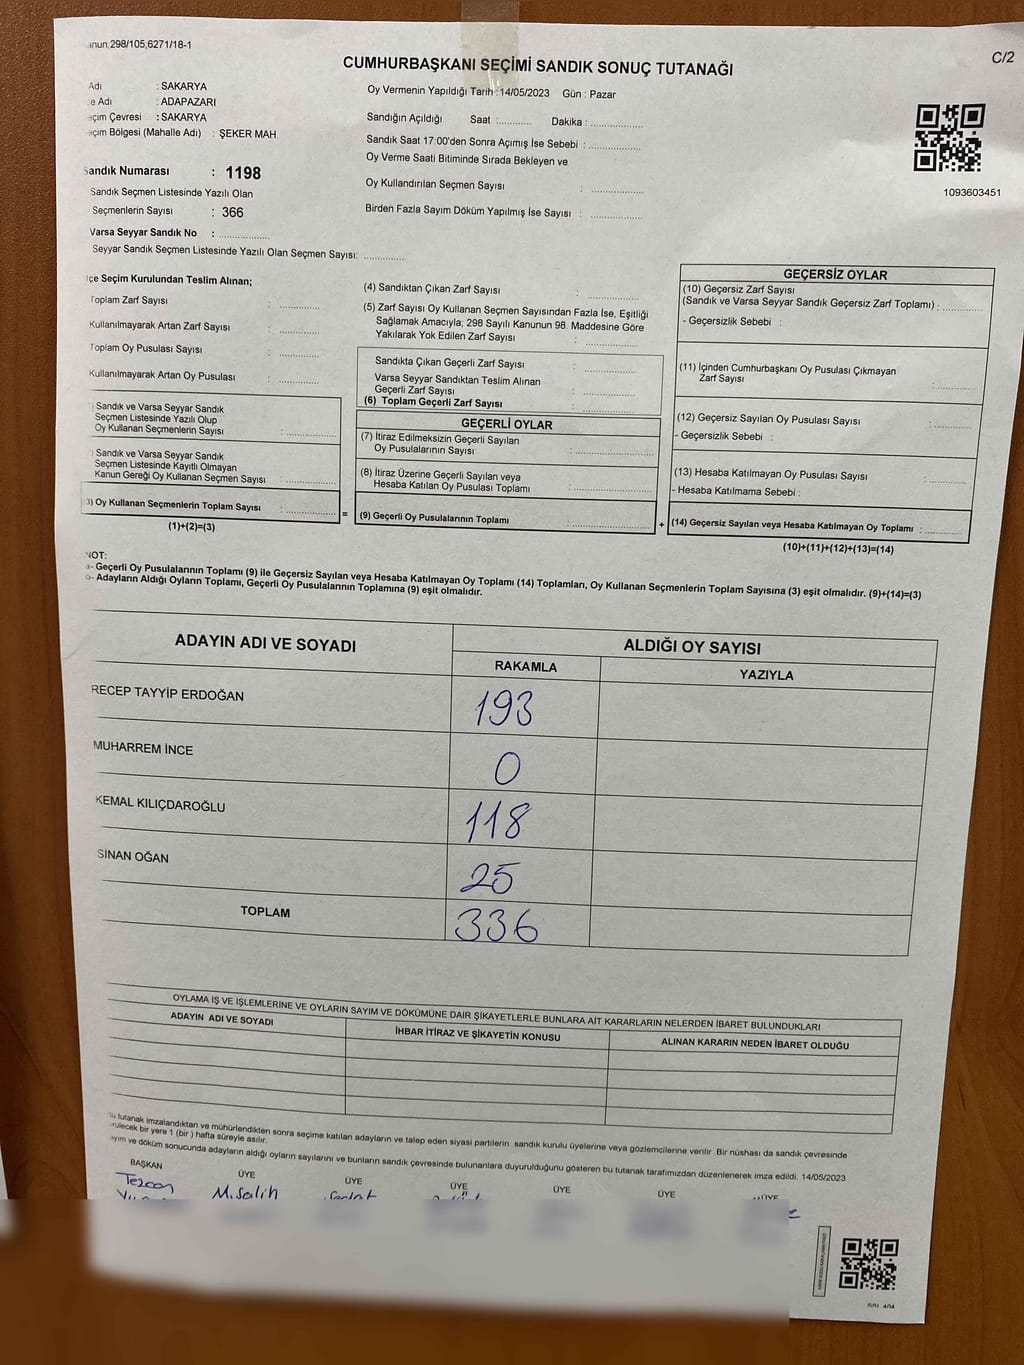 anun;298/105;6271/18-1
C/2
CUMHURBAŞKANI SEÇİMİ SANDIK SONUÇ TUTANAĞI
Adı : SAKARYA
e Adı : ADAPAZARI
eçim Çevresi : SAKARYA
eçim Bölgesi (Mahalle Adı) : ŞEKER MAH.
Sandık Numarası : 1198
Sandık Seçmen Listesinde Yazılı Olan
Seçmenlerin Sayısı : 366
Varsa Seyyar Sandık No : ..................
Seyyar Sandık Seçmen Listesinde Yazılı Olan Seçmen Sayısı: ..............
Oy Vermenin Yapıldığı Tarih :14/05/2023 Gün : Pazar
Sandığın Açıldığı Saat :........... Dakika : ..................
Sandık Saat 17:00'den Sonra Açımış İse Sebebi : ..................
Oy Verme Saati Bitiminde Sırada Bekleyen ve
Oy Kullandırılan Seçmen Sayısı : ..................
Birden Fazla Sayım Döküm Yapılmış İse Sayısı : ..................
1093603451
içe Seçim Kurulundan Teslim Alınan;
Toplam Zarf Sayısı : ..............
Kullanılmayarak Artan Zarf Sayısı : ..............
Toplam Oy Pusulası Sayısı : ..............
Kullanılmayarak Artan Oy Pusulası : ..............
) Sandık ve Varsa Seyyar Sandık
Seçmen Listesinde Yazılı Olup
Oy Kullanan Seçmenlerin Sayısı : ..................
) Sandık ve Varsa Seyyar Sandık
Seçmen Listesinde Kayıtlı Olmayan
Kanun Gereği Oy Kullanan Seçmen Sayısı : ..................
3) Oy Kullanan Seçmenlerin Toplam Sayısı : ..................
(1)+(2)=(3)
=
(4) Sandıktan Çıkan Zarf Sayısı : ..................
(5) Zarf Sayısı Oy Kullanan Seçmen Sayısından Fazla İse, Eşitliği
Sağlamak Amacıyla; 298 Sayılı Kanunun 98. Maddesine Göre
Yakılarak Yok Edilen Zarf Sayısı : ..................
Sandıkta Çıkan Geçerli Zarf Sayısı : ..................
Varsa Seyyar Sandıktan Teslim Alınan
Geçerli Zarf Sayısı : ..................
(6) Toplam Geçerli Zarf Sayısı : ..................
GEÇERLİ OYLAR
(7) İtiraz Edilmeksizin Geçerli Sayılan
Oy Pusulalarının Sayısı : ..................
(8) İtiraz Üzerine Geçerli Sayılan veya
Hesaba Katılan Oy Pusulası Toplamı : ..................
(9) Geçerli Oy Pusulalarının Toplamı : ..................
+
GEÇERSİZ OYLAR
(10) Geçersiz Zarf Sayısı
(Sandık ve Varsa Seyyar Sandık Geçersiz Zarf Toplamı) : ..............
- Geçersizlik Sebebi :
(11) İçinden Cumhurbaşkanı Oy Pusulası Çıkmayan
Zarf Sayısı : ..............
(12) Geçersiz Sayılan Oy Pusulası Sayısı : ..............
- Geçersizlik Sebebi :
(13) Hesaba Katılmayan Oy Pusulası Sayısı : ..............
- Hesaba Katılmama Sebebi :
(14) Geçersiz Sayılan veya Hesaba Katılmayan Oy Toplamı : ..............
(10)+(11)+(12)+(13)=(14)
NOT:
a- Geçerli Oy Pusulalarının Toplamı (9) ile Geçersiz Sayılan veya Hesaba Katılmayan Oy Toplamı (14) Toplamları, Oy Kullanan Seçmenlerin Toplam Sayısına (3) eşit olmalıdır. (9)+(14)=(3)
b- Adayların Aldığı Oyların Toplamı, Geçerli Oy Pusulalarının Toplamına (9) eşit olmalıdır.
ADAYIN ADI VE SOYADI
ALDIĞI OY SAYISI
RAKAMLA YAZIYLA
RECEP TAYYİP ERDOĞAN 193
MUHARREM İNCE 0
KEMAL KILIÇDAROĞLU 118
SİNAN OĞAN 25
TOPLAM 336
OYLAMA İŞ VE İŞLEMLERİNE VE OYLARIN SAYIM VE DÖKÜMÜNE DAİR ŞİKAYETLERLE BUNLARA AİT KARARLARIN NELERDEN İBARET BULUNDUKLARI
ADAYIN ADI VE SOYADI İHBAR İTİRAZ VE ŞİKAYETİN KONUSU ALINAN KARARIN NEDEN İBARET OLDUĞU
Bu tutanak imzalandıktan ve mühürlendikten sonra seçime katılan adayların ve talep eden siyasi partilerin sandık kurulu üyelerine veya gözlemcilerine verilir .Bir nüshası da sandık çevresinde
rülecek bir yere 1 (bir ) hafta süreyle asılır.
ayım ve döküm sonucunda adayların aldığı oyların sayılarını ve bunların sandık çevresinde bulunanlara duyurulduğunu gösteren bu tutanak tarafımızdan düzenlenerek imza edildi. 14/05/2023
BAŞKAN ÜYE ÜYE ÜYE ÜYE ÜYE ÜYE
Tezcan M.Salih